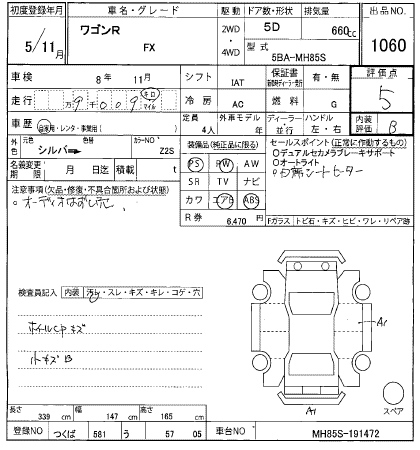 初度登録年月 車名・グレード 駆動 ドア数・形状 排気量 出品NO.
5/11月 ワゴンR FX 2WD・4WD 5D 660cc 1060
型式 5BA-MH85S
車検 8年 11月 シフト IAT 保証書 有・無 評価点
走行 万9千009 キロ マイル 冷房 AC 燃料 G 5
車歴 自家用・レンタ・事業用( ) 定員 4人 外車モデル 年 ディーラー 並行 ハンドル 左・右 内装評価 B
外色 元色 シルバー 色替 カラーNO. Z2S
装備品(純正品に限る) セールスポイント(正常に作動するもの)
名義変更期限 月 日迄 積載 t
PS PW AW
○デュアルセカメラブレーキサポート
○オートライト
SR TV ナビ
カワ エアB ABS
R券 6,470円
注意事項(欠品・修復・不具合箇所および状態)
Fガラス トビ石・キズ・ヒビ・ワレ・リペア跡
検査員記入 内装 汚れ・スレ・キズ・キレ・コゲ・穴
ホイルCPキズ
小キズB
A1
A1
スペア
長さ 339cm 幅 147cm 高さ 165cm
登録NO つくば 581 う 57 05 車台NO MH85S-191472